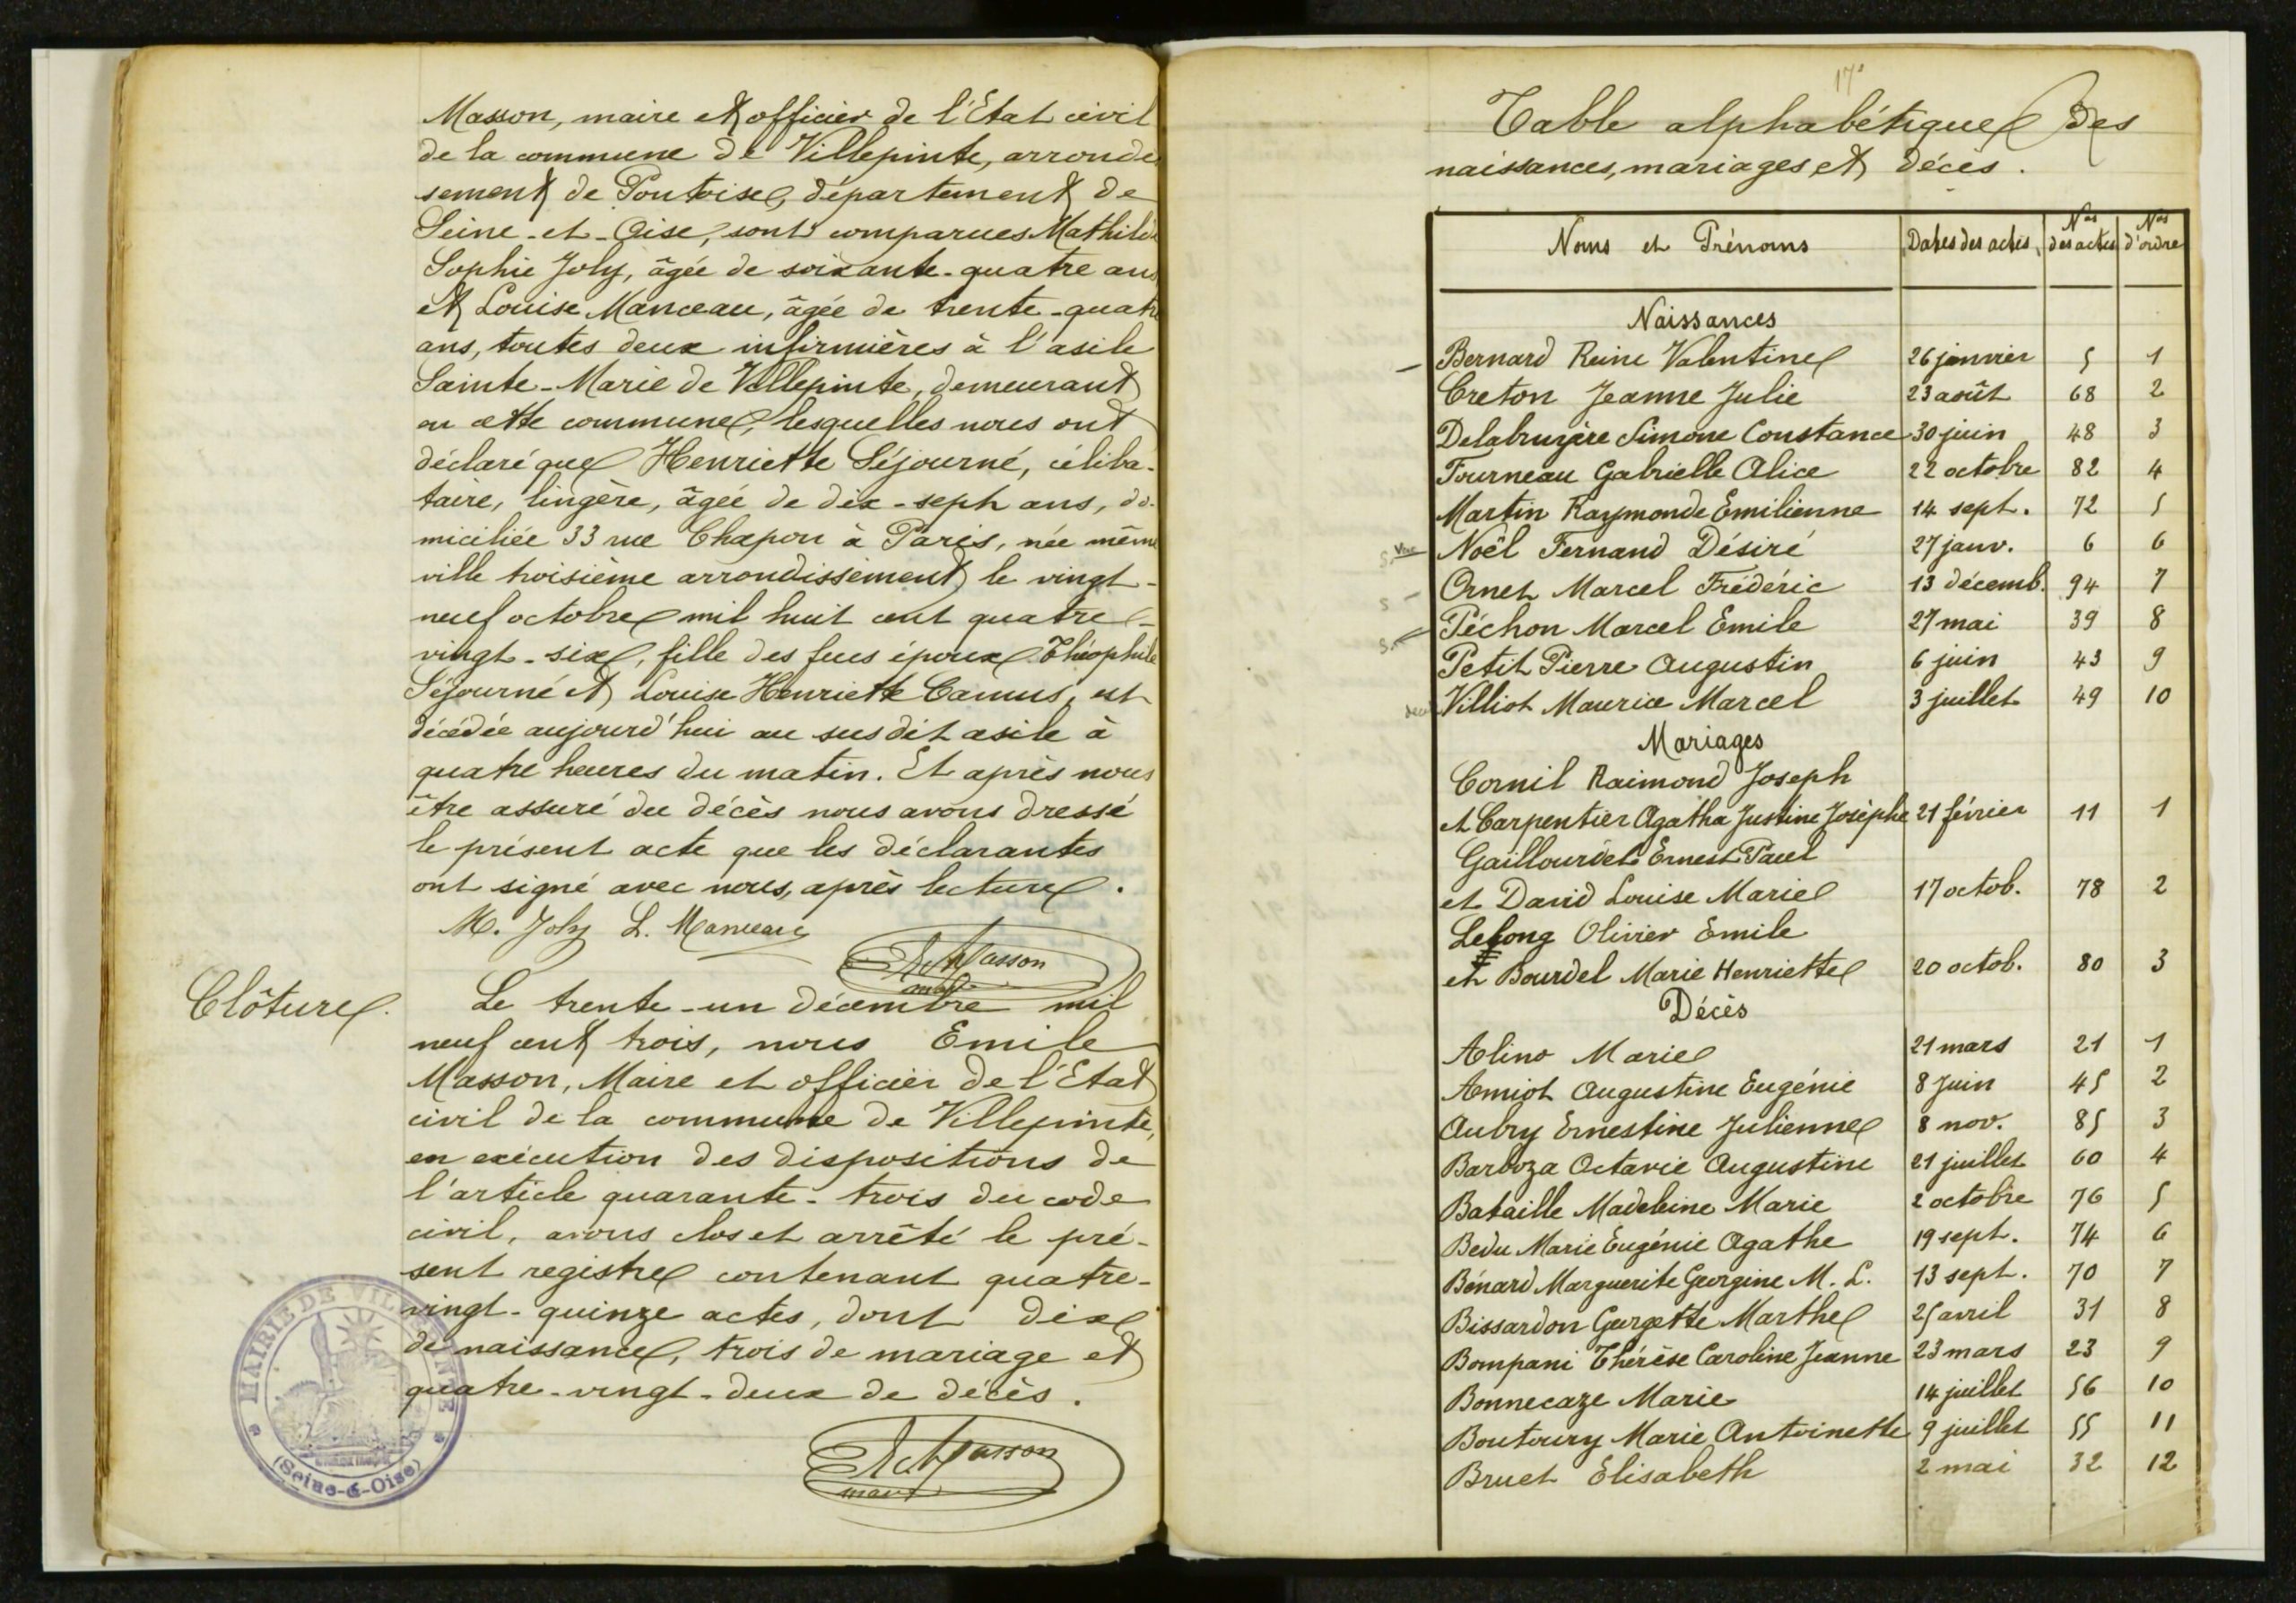 Masson, maire et officier de l'Etat civil
de la commune de Villepinte, arrondis
sement de Pontoise, département de
Seine-et-Oise, sont comparues Mathilde
Sophie Joly, âgée de soixante-quatre ans
et Louise Manceau, âgée de trente-quatre
ans, toutes deux infirmières à l'asile
Sainte-Marie de Villepinte, demeurant
en cette commune, lesquelles nous ont
déclaré que Henriette Séjourné, céliba-
taire, lingère, âgée de dix-sept ans, do-
miciliée 33 rue Chapon à Paris, née même
ville troisième arrondissement le vingt-
neuf octobre mil huit cent quatre-
vingt-six, fille des feus époux Théophile
Séjourné et Louise Henriette Camus, est
décédée aujourd'hui au susdit asile à
quatre heures du matin. Et après nous
être assuré du décès nous avons dressé
le présent acte que les déclarantes
ont signé avec nous, après lecture.
M. Joly L. Manceau
Masson
Clôture.
Le trente-un décembre mil
neuf cent trois, nous Emile
Masson, Maire et officier de l'Etat
civil de la commune de Villepinte,
en exécution des dispositions de
l'article quarante-trois du code
civil, avons clos et arrêté le pré-
sent registre contenant quatre-
vingt-quinze actes, dont dix
de naissance, trois de mariage et
quatre-vingt-deux de décès.
Masson
MAIRIE DE VILLEPINTE
(Seine-&-Oise)
17
Table alphabétique des
naissances, mariages et décès.
Noms et Prénoms Dates des actes Nos des actes Nos d'ordre
Naissances
Bernard Reine Valentine 26 janvier 5 1
Creton Jeanne Julie 23 août 68 2
Delabruyère Simone Constance 30 juin 48 3
Fourneau Gabrielle Alice 22 octobre 82 4
Martin Raymonde Emilienne 14 sept. 72 5
Noël Fernand Désiré 27 janv. 6 6
Ornet Marcel Frédéric 13 décemb. 94 7
Péchon Marcel Emile 27 mai 39 8
Petit Pierre Augustin 6 juin 43 9
Villiot Maurice Marcel 3 juillet 49 10
Mariages
Cornil Raimond Joseph
et Carpentier Agatha Justine Josèphe 21 février 11 1
Gaillourdet Ernest Paul
et David Louise Marie 17 octob. 78 2
Lelong Olivier Emile
et Bourdel Marie Henriette 20 octob. 80 3
Décès
Alino Marie 21 mars 21 1
Amiot Augustine Eugénie 8 Juin 45 2
Aubry Ernestine Julienne 8 nov. 85 3
Barboza Octavie Augustine 21 juillet 60 4
Bataille Madeleine Marie 2 octobre 76 5
Bedu Marie Eugénie Agathe 19 sept. 74 6
Bénard Marguerite Georgine M. L. 13 sept. 70 7
Bissardon Georgette Marthe 25 avril 31 8
Bompani Thérèse Caroline Jeanne 23 mars 23 9
Bonnecaze Marie 14 juillet 56 10
Boutoury Marie Antoinette 9 juillet 55 11
Bruet Elisabeth 2 mai 32 12